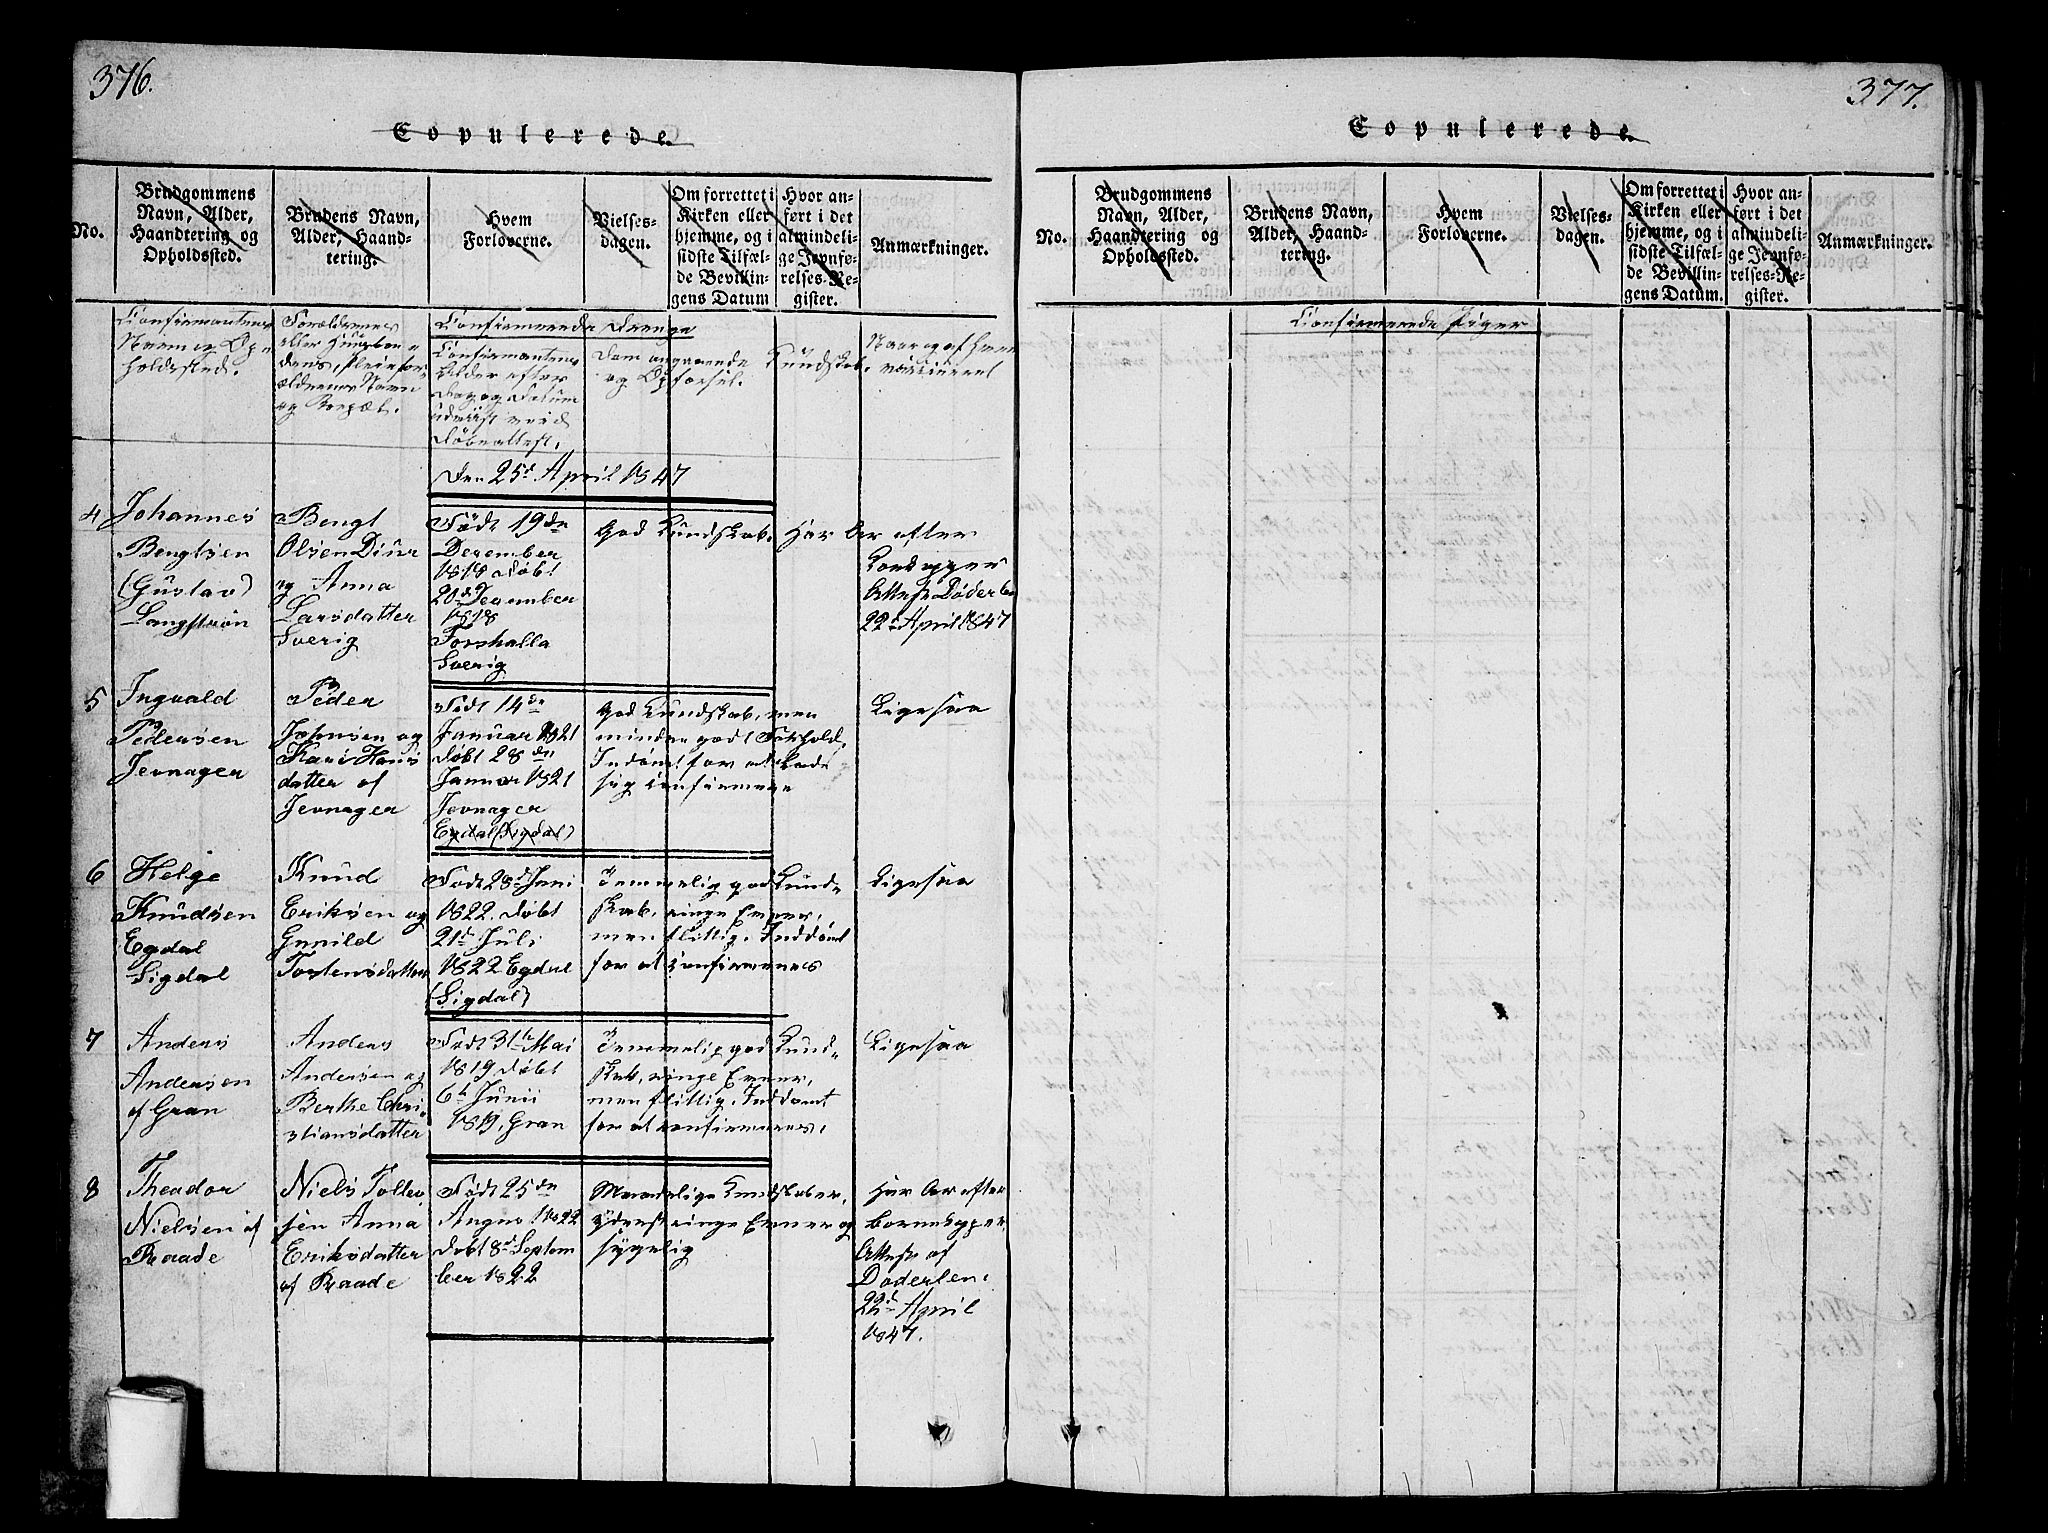 376.
Copulerede.
No.
Brudgommens
Navn, Alder,
Haandtering og
Opholdssted.
Brudens Navn,
Alder, Haand-
tering.
Hvem
Forloverne.
Vielses-
dagen.
Om forrettet i
Kirken eller
hjemme, og i
sidste Tilfæl-
de Bevillin-
gens Datum
Hvor an-
ført i det
almindeli-
ge Jevnfø-
relses-Re-
gister.
Anmærkninger.
Confirmantens
Navn og Op
holdssted.
Forældrenes
eller Huusbon
dens, Pleiefor
ældrenes Navn
og Bopæl.
Confirmerede Drenge
Confirmantens
Alder efter
Dag og Datum
udviist ved
Døbeattest.
Dom angaaende
og Opførsel.
Kundskab.
Naar og af hvem
vaccineret
Den 25de April 1847
4
Johannes
Bengtsen
(Gustav)
Langstrøn
Bengt
Olsen Diur
og Anna
Larsdatter
Sverig
Født 19de
December
1818 døbt
20d December
1818
Forshalla
Sverig
God Kundskab.
Har Ar efter
Kokopper
Attest Døderlen
22d April 1847
5
Ingvald
Pedersen
Jevnager
Peder
Johnsen og
Kari Hans
datter af
Jevnager
Født 14de
Januar 1821
døbt 28de
Januar 1821
Jevnager
Egdal (Sigdal)
God Kundskab, men
mindre godt Forhold.
Inddømt for at lade
sig confirmere
Ligesaa
6
Helge
Knudsen
Egdal
Sigdal
Knud
Eriksen og
Gunild
Torstensdatter
Født 28d Juni
1822. døbt
21d Juli
1822 Egdal
(Sigdal)
Temmelig god Kund-
skab, ringe Evner,
men flittig. Inddømt
for at confirmeres
Ligesaa
7
Anders
Andersen
af Gran
Anders
Andersen og
Berthe Chri-
stiansdatter
Født 31te Mai
1819 døbt
6te Junii
1819, Gran
Temmelig god Kund-
skab, ringe Evner,
men flittig. Inddømt
for at confirmeres.
Ligesaa
8
Theador
Nielsen af
Raade
Niels Tolle
sen Anna
Eriksdatter
af Raade
Født 25de
August 1822
døbt 8d Septem
ber 1822
Maadelige Kundskaber,
yderst ringe Evner og
sygelig
Har Ar efter
Børnekopper
Attest af
Døderlen.
22d April
1847.
377.
Copulerede.
No.
Brudgommens
Navn, Alder,
Haandtering og
Opholdssted.
Brudens Navn,
Alder, Haand-
tering.
Hvem
Forloverne.
Vielses-
dagen.
Om forrettet i
Kirken eller
hjemme, og i
sidste Tilfæl-
de Bevillin-
gens Datum.
Hvor an-
ført i det
almindeli-
ge Jevnfø-
relses-Re-
gister.
Anmærkninger.
Confirmerede Piger